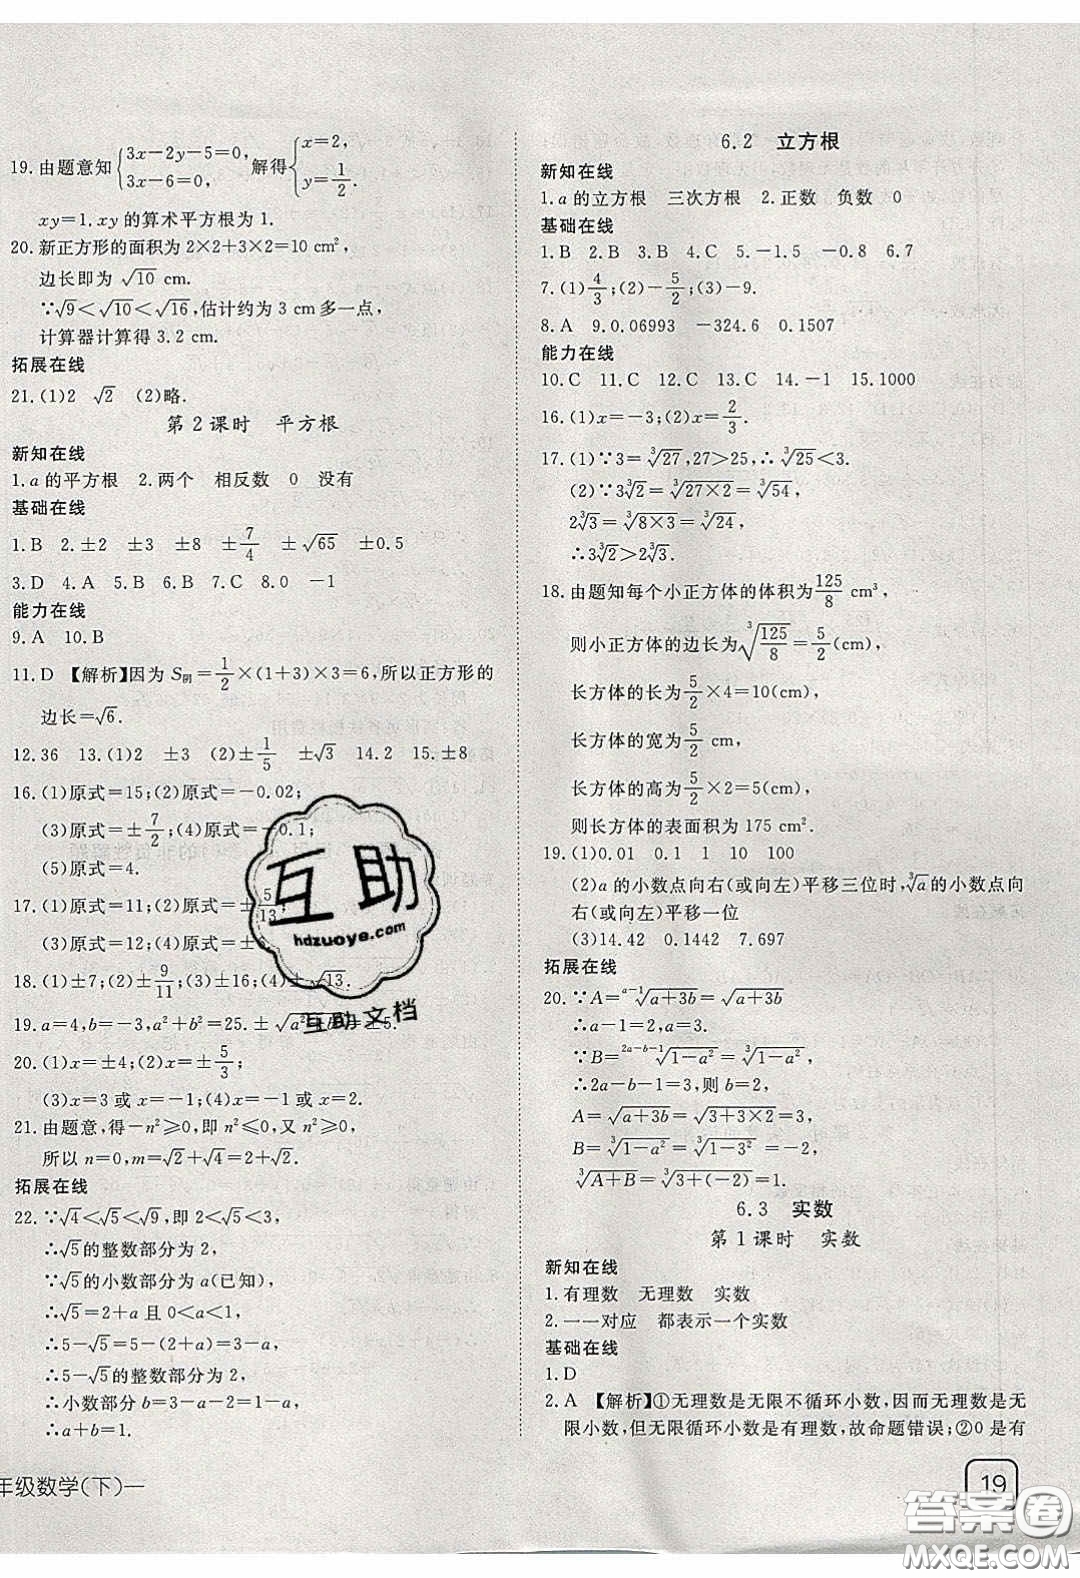 19.由题意知{3x－2y－5=0, 3x－6=0, 解得{x=2, y=1/2.
xy=1.xy的算术平方根为1.
20.新正方形的面积为2×2+3×2=10 cm²,
边长即为√10 cm.
∵√9<√10<√16,估计约为3 cm多一点,
计算器计算得3.2 cm.
拓展在线
21.(1)2 √2 (2)略.
第2课时 平方根
新知在线
1.a的平方根 2.两个 相反数 0 没有
基础在线
1.B 2.±2 ±3 ±8 ±7/4 ±√65 ±0.5
3.D 4.A 5.A 6.B 7.C 8.0 －1
能力在线
9.A 10.B
11.D 【解析】因为S阴=1/2×(1+3)×3=6,所以正方形的
边长=√6.
12.36 13.(1)2 ±3 (2)±1/5 ±√3 14.2 15.±8
16.(1)原式=15;(2)原式=－0.02;
(3)原式=±7/2;(4)原式=－0.1;
(5)原式=4.
17.(1)原式=11;(2)原式=±5/13;
(3)原式=－0.9;(4)原式=±
18.(1)±7;(2)±9/11;(3)±16;(4)±√13.
19.a=4,b=－3,a²+b²=25.±√a²+b²=±5.
20.(1)x=±4;(2)x=±5/3;
(3)x=3或x=－1;(4)x=1或x=2.
21.由题意,得－n²≥0,即n²≤0,又n²≥0,
所以n=0,m=√2+√4=2+√2.
拓展在线
22.∵√4<√5<√9,即2<√5<3,
∴√5的整数部分为2,
∵√5的小数部分为a(已知),
∴√5=2+a且0<a<1,
∴5－√5=5－(2+a)=3－a,
∴5－√5的整数部分为2,
∴小数部分b=3－a－2=1－a,
∴a+b=1.
年级数学(下)—
6.2 立方根
新知在线
1.a的立方根 三次方根 2.正数 负数 0
基础在线
1.B 2.B 3.C 4.C 5.－1.5 －0.8 6.7
7.(1)4/3;(2)－5/2;(3)－9.
8.A 9.0.06993 －324.6 0.1507
能力在线
10.C 11.C 12.C 13.D 14.－1 15.1000
16.(1)x=－3;(2)x=2/3.
17.(1)∵3=∛27,27>25,∴∛25<3.
(2)∵3∛2=∛27×2=∛54,
2∛3=∛8×3=∛24,
∴3∛2>2∛3.
18.由题知每个小正方体的体积为125/8 cm³,
则小正方体的边长为∛125/8=5/2(cm),
长方体的长为5/2×4=10(cm),
长方体的宽为5/2 cm,
长方体的高为5/2×2=5(cm),
则长方体的表面积为175 cm².
19.(1)0.01 0.1 1 10 100
(2)a的小数点向右(或向左)平移三位时,∛a的小数点向
右(或向左)平移一位
(3)14.42 0.1442 7.697
拓展在线
20.∵A=ᵃ⁻¹√a+3b=√a+3b,
∴a－1=2,a=3.
∵B=²ᵃ⁻ᵇ⁻¹√1－a²=∛1－a²,
∴2a－b－1=3,则b=2.
A=√a+3b=√3+3×2=3,
B=∛1－a²=∛1－3²=－2,
∴∛A+B=∛3+(－2)=1.
6.3 实数
第1课时 实数
新知在线
1.有理数 无理数 实数
2.一一对应 都表示一个实数
基础在线
1.D
2.A 【解析】①无理数是无限不循环小数,因而无理数是无
限小数,但无限循环小数是有理数,故命题错误;②0是有
19
互助
hdzuoye.com
互助文档
答案圈
MXQE.COM